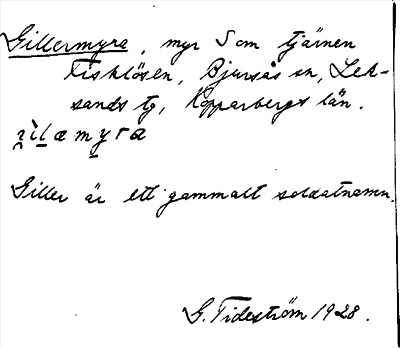 Gillermyra, myr S om tjärnen
Fisklösen, Bjursås sn, Lek-
sands tg, Kopparbergs län.
Giller är ett gammalt soldatnamn.
G. Tideström 1928.